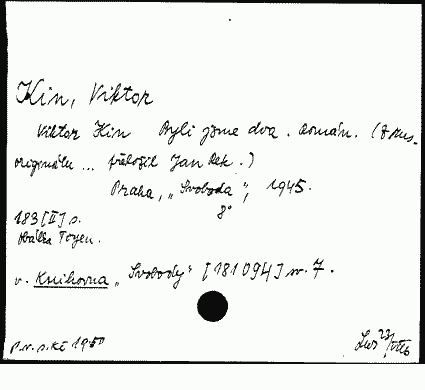 Kin, Viktor
Viktor Kin Byli jsme dva. Román. (Z rus.
originálu ... přeložil Jan Rek.)
Praha, „Svoboda", 1945.
8°
183 [II] s.
Obálka Toyen.
v. Knihovna „Svobody" [181094] sv. 7.
P.v.s.kč 1950